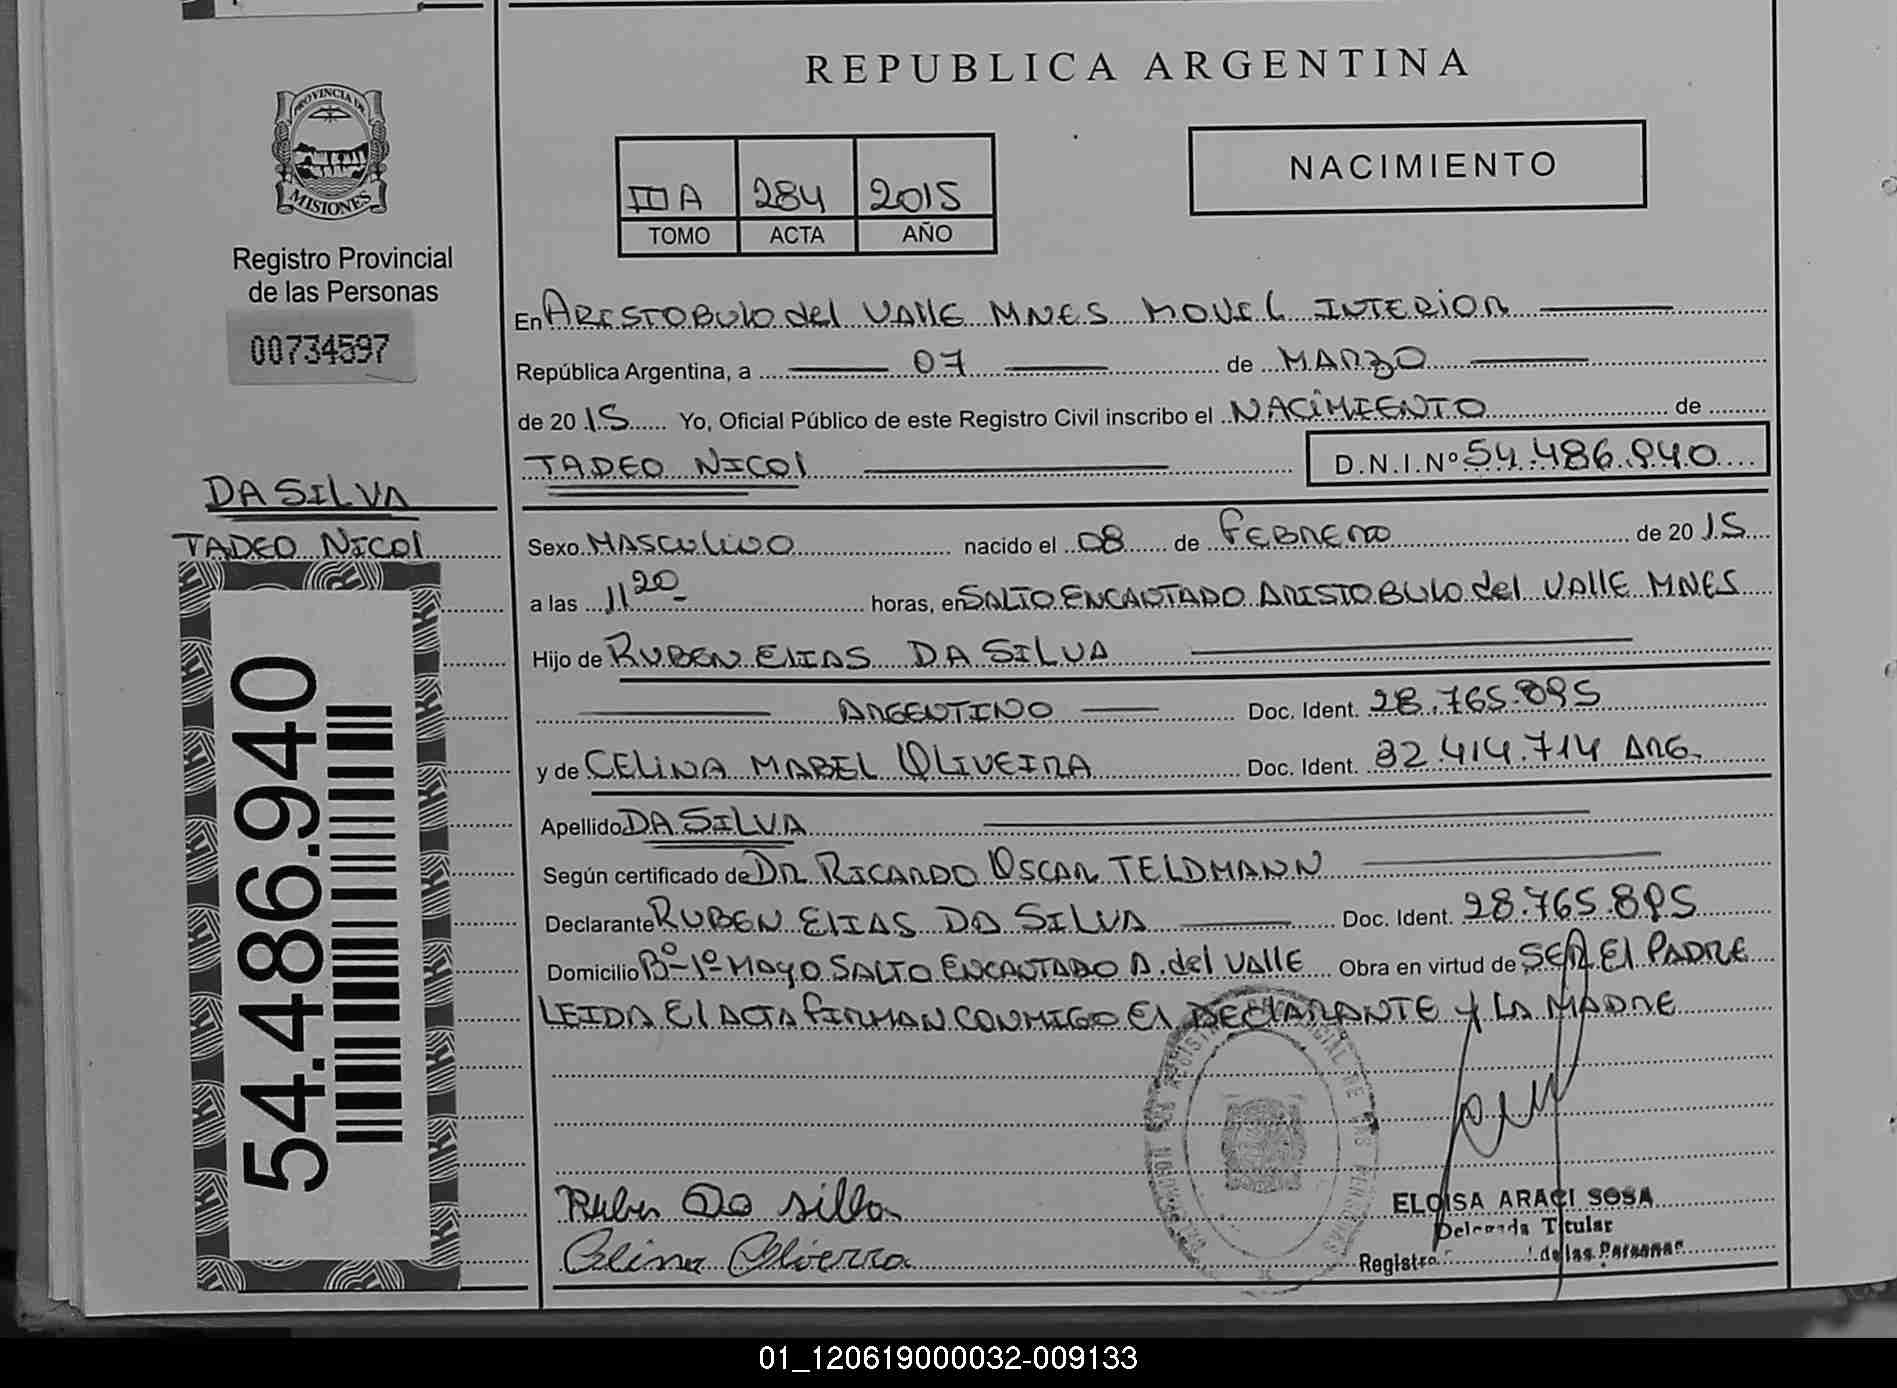 REPUBLICA ARGENTINA
PROVINCIA DE
MISIONES
Registro Provincial
de las Personas
00734597
II A 284 2015
TOMO ACTA AÑO
NACIMIENTO
En ARISTOBULO del VALLE MNES MOVIL INTERIOR
República Argentina, a 07 de MARZO
de 20 15 Yo, Oficial Público de este Registro Civil inscribo el NACIMIENTO de
TADEO NICOl
D.N.I.Nº 54.486.940
DA SILVA
TADEO NICOl
Sexo MASCULINO nacido el 08 de FEBRERO de 20 15
a las 11 20 horas, en SALTO ENCANTADO ARISTOBULO del VALLE MNES
Hijo de RUBEN ELIAS DA SILVA
ARGENTINO Doc. Ident. 28.765.895
y de CELINA MABEL OLIVEIRA Doc. Ident. 32.414.714 ARG.
Apellido DA SILVA
Según certificado de DR RICARDO OSCAR TELDMANN
Declarante RUBEN ELIAS DA SILVA Doc. Ident. 28.765.895
Domicilio Bº 1º MAYO SALTO ENCANTADO A. del VALLE Obra en virtud de SER El PADRE
LEIDA El ACTA FIRMAN CONMIGO El DECLARANTE Y LA MADRE
54.486.940
Ruben Da silva
Celina Oliveira
ELOISA ARACI SOSA
Delegada Titular
Registro de las Personas
01_120619000032-009133